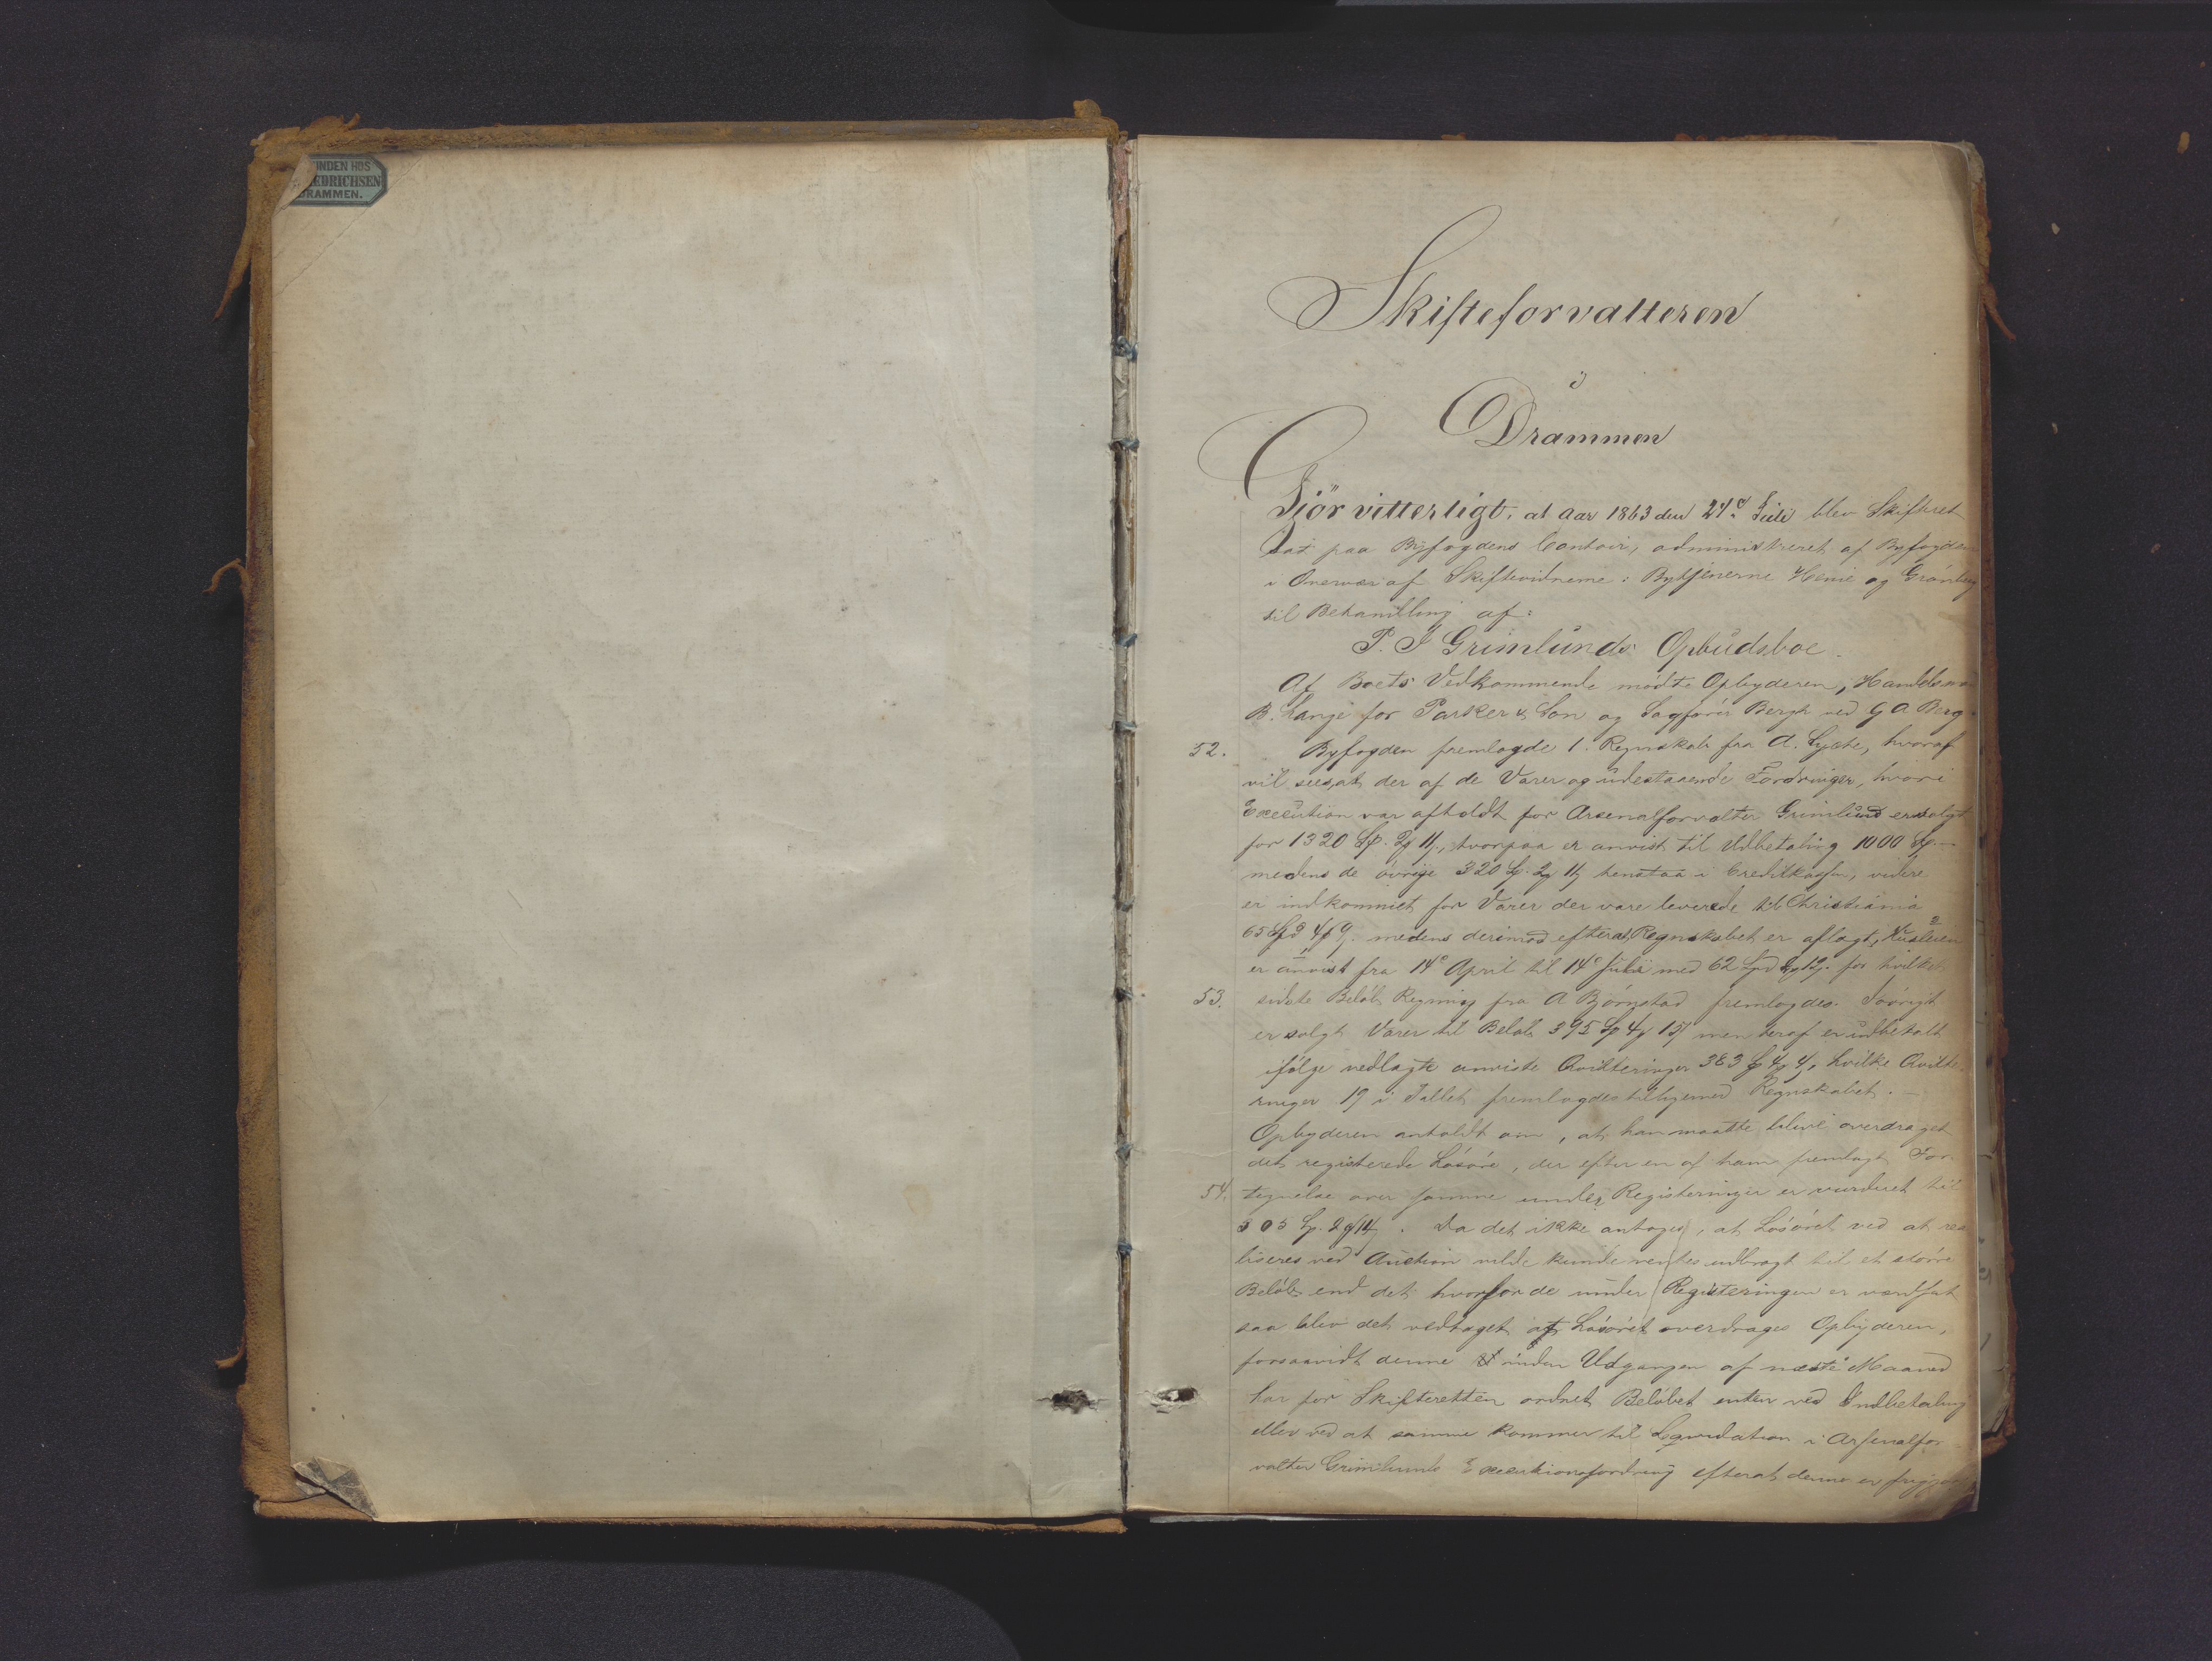 INDEN HOS
EDRICHSEN
DRAMMEN.
Skifteforvalteren
i
Drammen
Gjör vitterligt, at Aar 1863 den 27de Juli blev Skifteret
sat paa Byfogdens Contoir, administreret af Byfogden
i Overvær af Skiftevidnerne: Bytjenerne Henie og Grönberg
til Behandling af:
P. J Grimlunds Opbudsboe.
Af Boets Vedkommende mödte Opbyderen, Handelsm
B. Lange for Parker & Son og Sagförer Bergh ved G A Berg
52. Byfogden fremlagde 1. Regnskab fra A. Lycke, hvoraf
vil sees, at der af de Varer og udestaaende Fordringer, hvori
Execution var afholdt for Arsenalforvalter Grimlund er solgt
for 1320 Sp. 2 11, hvorpaa er anvist til Udbetaling 1000 Sp.
medens de övrige 320 Sp. 2 11 henstaa i Creditkassen, videre
er indkommet for Varer der vare leverede til Christiania
65 Spd 4 9. medens derimod efterat Regnskabet er aflagt, Husleien
er anvist fra 14de April til 14de Juli med 62 Spd 12. for hvilket
53. sidste Belöb Regning fra A Björnstad fremlagdes. Iövrigt
er solgt Varer til Belöb 395 Sp 4 15 men deraf er udbetalt
ifölge vedlagte anviste Qvitteringer 383 Sp 4 4, hvilke Qvitte-
ringer 19 i Tallet fremlagdes tilligemed Regnskabet.
Opbyderen anholdt om, at han maatte blive overdraget
det registerede Lösöre, der efter en af ham fremlagt For
54. tegnelse over samme under Registeringer er vurderet til
505 Sp. 2 14. Da det ikke antages, at Lösöret ved at rea
liseres ved Auction vilde kunde ventes udbragt til et större
Belöb end det hvorfor de under Registeringen er værdsat
saa blev det vedtaget at Lösöret overdrages Opbyderen,
forsaavidt denne inden Udgangen af næste Maaned
har for Skifteretten ordnet Belöbet enten ved Indbetaling
eller ved at samme kommer til Liqvidation i Arsenalfor
valter Grimlunds Executionsfordring efterat denne er